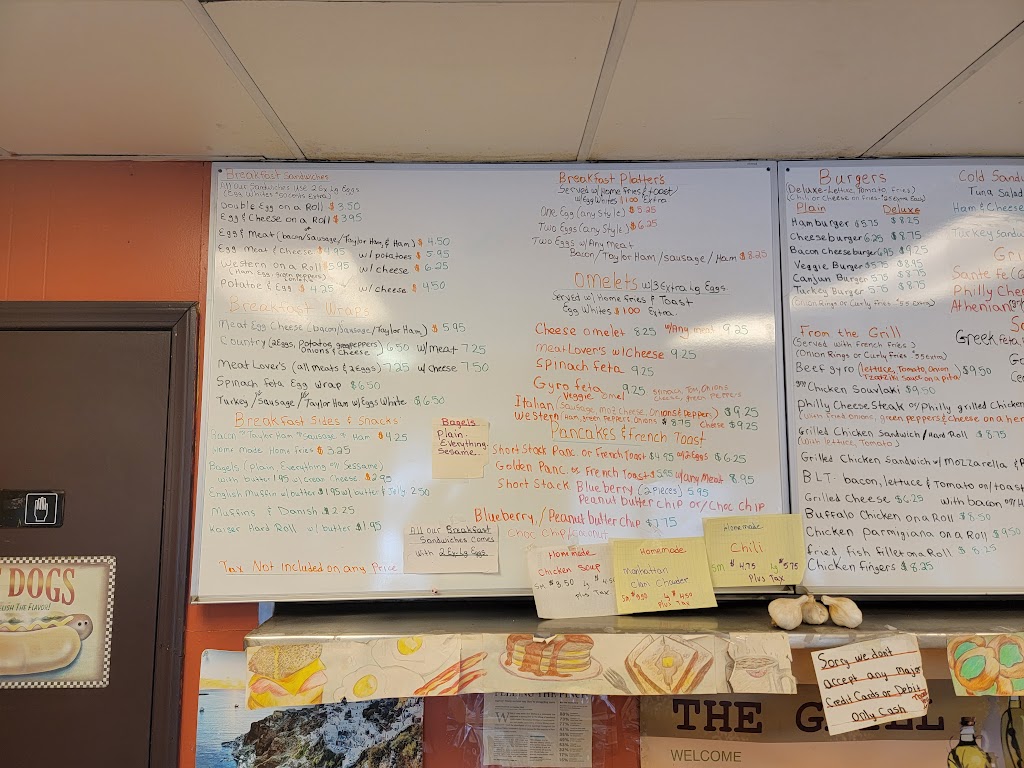 Breakfast Sandwiches
All our Sandwiches use 2 Ex Lg Eggs
(Egg Whites 50 cents Extra)
Double Egg on a Roll $3.50
Egg & Cheese on a Roll $3.95
Egg & Meat (bacon/Sausage/Taylor Ham, & Ham) $4.50
Egg Meat & Cheese $4.95 w/potatoes $5.95
Western on a Roll $5.95 w/cheese $6.25
(Ham, Egg, green peppers, onions)
Potatoe & Egg $4.25 w/cheese $4.50
Breakfast Wraps
Meat Egg Cheese (bacon/Sausage/Taylor Ham) $5.95
Country (2 Eggs, Potatoe, green peppers, Onions & Cheese) 6.50 w/meat 7.25
Meat Lover's (all meats & 2 Eggs) 7.25 w/cheese 7.50
Spinach feta Egg wrap $6.50
Turkey/Sausage/Taylor Ham w/Eggs White $6.50
Breakfast Sides & Snacks
Bacon Taylor Ham Sausage Ham $4.25
Home Made Home Fries $3.25
Bagels (Plain, Everything or Sessame)
with butter 1.95 w/Cream Cheese $2.95
English Muffin w/butter $1.95 w/butter & Jelly 2.50
Muffins & Danish $2.25
Kaiser Hard Roll w/butter $1.95
Tax Not Included on any Price
Bagels
Plain.
Everything.
Sesame.
All our Breakfast
Sandwiches comes
with 2 Ex Lg Eggs
Breakfast Platter's
Served w/Home Fries & toast
w/Egg Whites $1.00 Extra
One Egg (any Style) $5.25
Two Eggs (any Style) $6.25
Two Eggs w/Any Meat
Bacon/Taylor Ham/Sausage/Ham $8.25
Omelets w/3 Extra Lg Eggs.
Served w/Home fries & Toast
Egg Whites $1.00 Extra.
Cheese omelet 8.25 w/Any meat 9.25
Meat Lover's w/Cheese 9.25
Spinach feta 9.25
Gyro feta 9.25
Veggie omel Spinach, Tom, Onions
Cheese, green peppers
Italian (Sausage, moz cheese, Onions & Peppers) $9.25
Western (Ham, green peppers, Onions $8.75 Cheese $9.25
Pancakes & french Toast
Short Stack Panc. or French Toast $4.95 w/2 Eggs $6.25
Golden Panc. or French Toast $5.95 w/any Meat 8.95
Short Stack Blueberry (2 pieces) 5.95
Peanut butter chip or/Choc Chip
Blueberry/Peanut butter chip $7.75
Choc Chip
Homemade
Chicken Soup
Sm $3.50 Lg
Plus Tax
Homemade
Manhattan
Clam Chowder
Sm $3.50 Lg $4.50
Plus Tax
Homemade
Chili
Sm $4.75 Lg $5.75
Plus Tax
Burgers
(Deluxe-Lettuce, Tomato, Fries)
(Chili or Cheese on fries
Plain Deluxe
Hamburger $5.75 $8.25
Cheeseburger 6.25 $8.75
Bacon Cheeseburger 6.95 $9.25
Veggie Burger $5.75 $8.75
Canjun Burger 5.75 $8.75
Turkey Burger 5.75 $8.75
(Onion Rings or Curly Fries
From the Grill
(Served with French Fries)
(Onion Rings or Curly Fries
Beef Gyro (Lettuce, Tomato, Onion $9.50
Tzatziki Sauce on a pita)
Chicken Souvlaki $9.50
Philly Cheese Steak or/Philly grilled Chicken
(with fried Onions, green peppers & cheese on a her
Grilled Chicken Sandwich/Hard Roll $8.75
(with lettuce, Tomato)
Grilled Chicken Sandwich w/Mozzarella &
BLT - bacon, lettuce & Tomato on/toas
Grilled Cheese $6.25 with bacon
Buffalo Chicken on a Roll $8.50
Chicken Parmigiana on a Roll $9.50
fried fish fillet on a Roll $8.25
Chicken fingers $8.25
Cold Sand
Tuna Salad
Ham & Cheese
Turkey Sand
Gri
Sante fe
Philly Che
Athenian
Greek feta,
DOGS
Sorry we don't
accept any Major
Credit Cards or Debit
Only Cash
THE GRILL
WELCOME